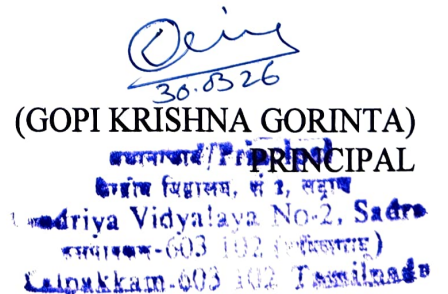 30.03.26
(GOPI KRISHNA GORINTA)
प्रधानाचार्य/Principal
PRINCIPAL
केन्द्रीय विद्यालय, सं 2, सद्रास
Vidyalaya No-2, Sadras
कलपाक्कम-603 102
Kalpakkam-603 102 Tamilnadu